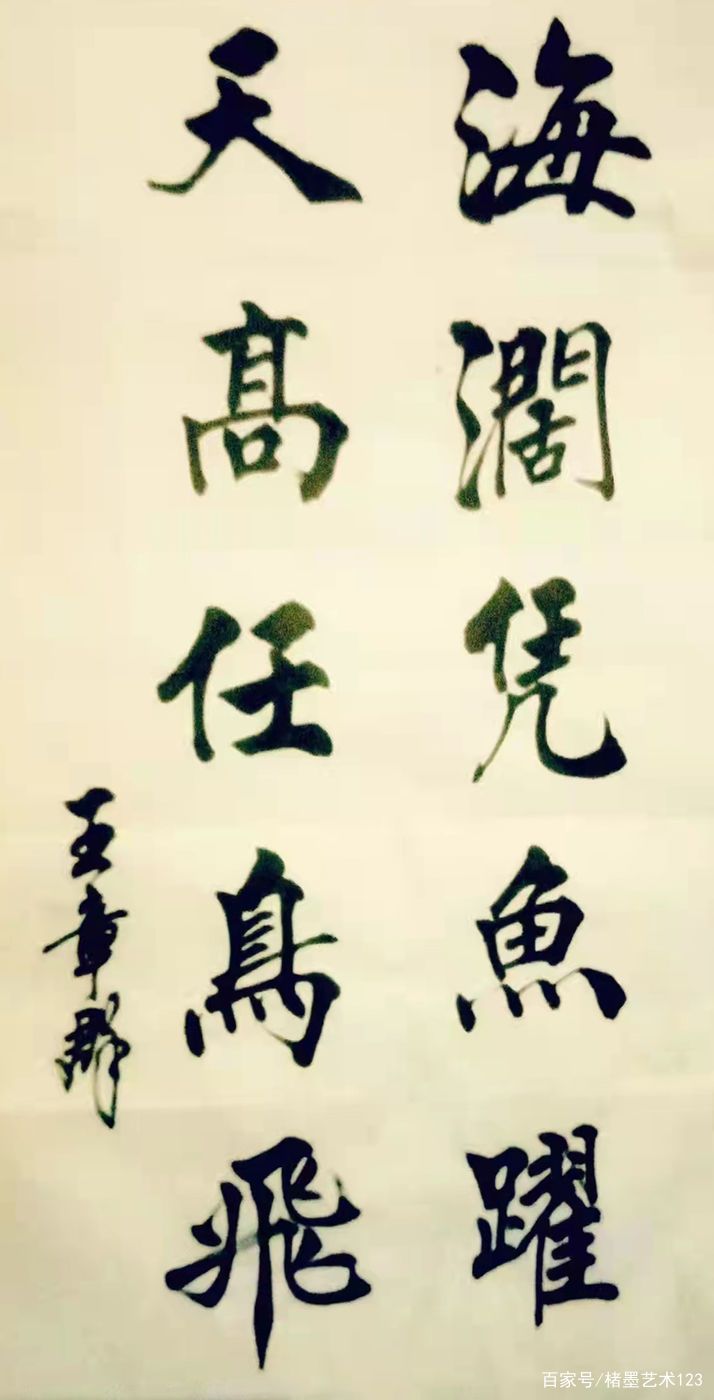 海濶凭魚躍
天高任鳥飛
王章群
百家号/楮墨艺术123